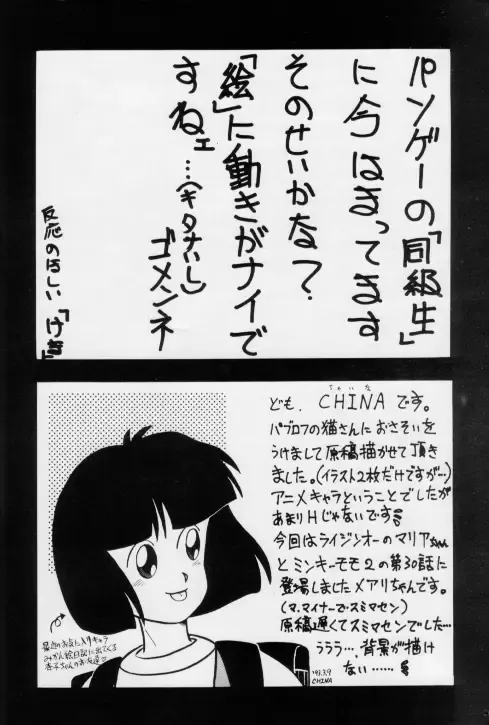 パソゲーの「同級生」
に今はまってます
そのせいかな?
「絵」に動きがナイで
すねェ…(キタナいし)
ゴメンネ
反応のほしい「けき」
ども、CHINAです。
ちゃいな
パブロフの猫さんにおさそいを
うけまして原稿描かせて頂き
ました。(イラスト2枚だけですが…)
アニメキャラということでしたが
あまりHじゃないです
今回はライジンオーのマリアちゃん
とミンキーモモ2の第30話に
登場しましたメアリちゃんです。
(マ、マイナーでスミマセン)
原稿遅くてスミマセンでした…
ううう…、背景が描け
ない……
最近のお気に入りキャラ
みかん絵日記に出てくる
ちゃんのお友達
'93.3.9
CHINA